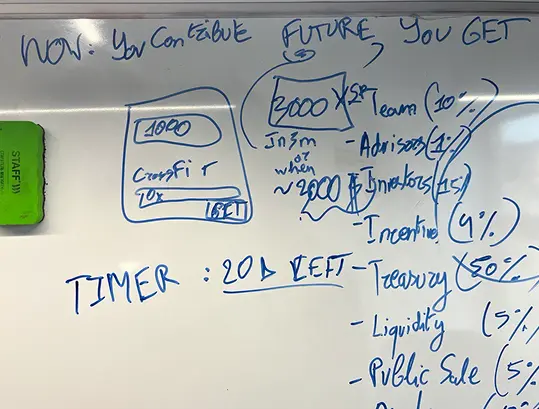 NOW: You Contribute FUTURE, YOU GET
STAFF
1000
CrossFi
10x
BET
3000
In 3m
or
when
~ 2000 $
TIMER : 20 D LEFT
- Team (10%)
- Advisors (1%)
- Investors (15)
- Incentive (4%)
- Treasury (50%)
- Liquidity (5%
- Public Sale (5%